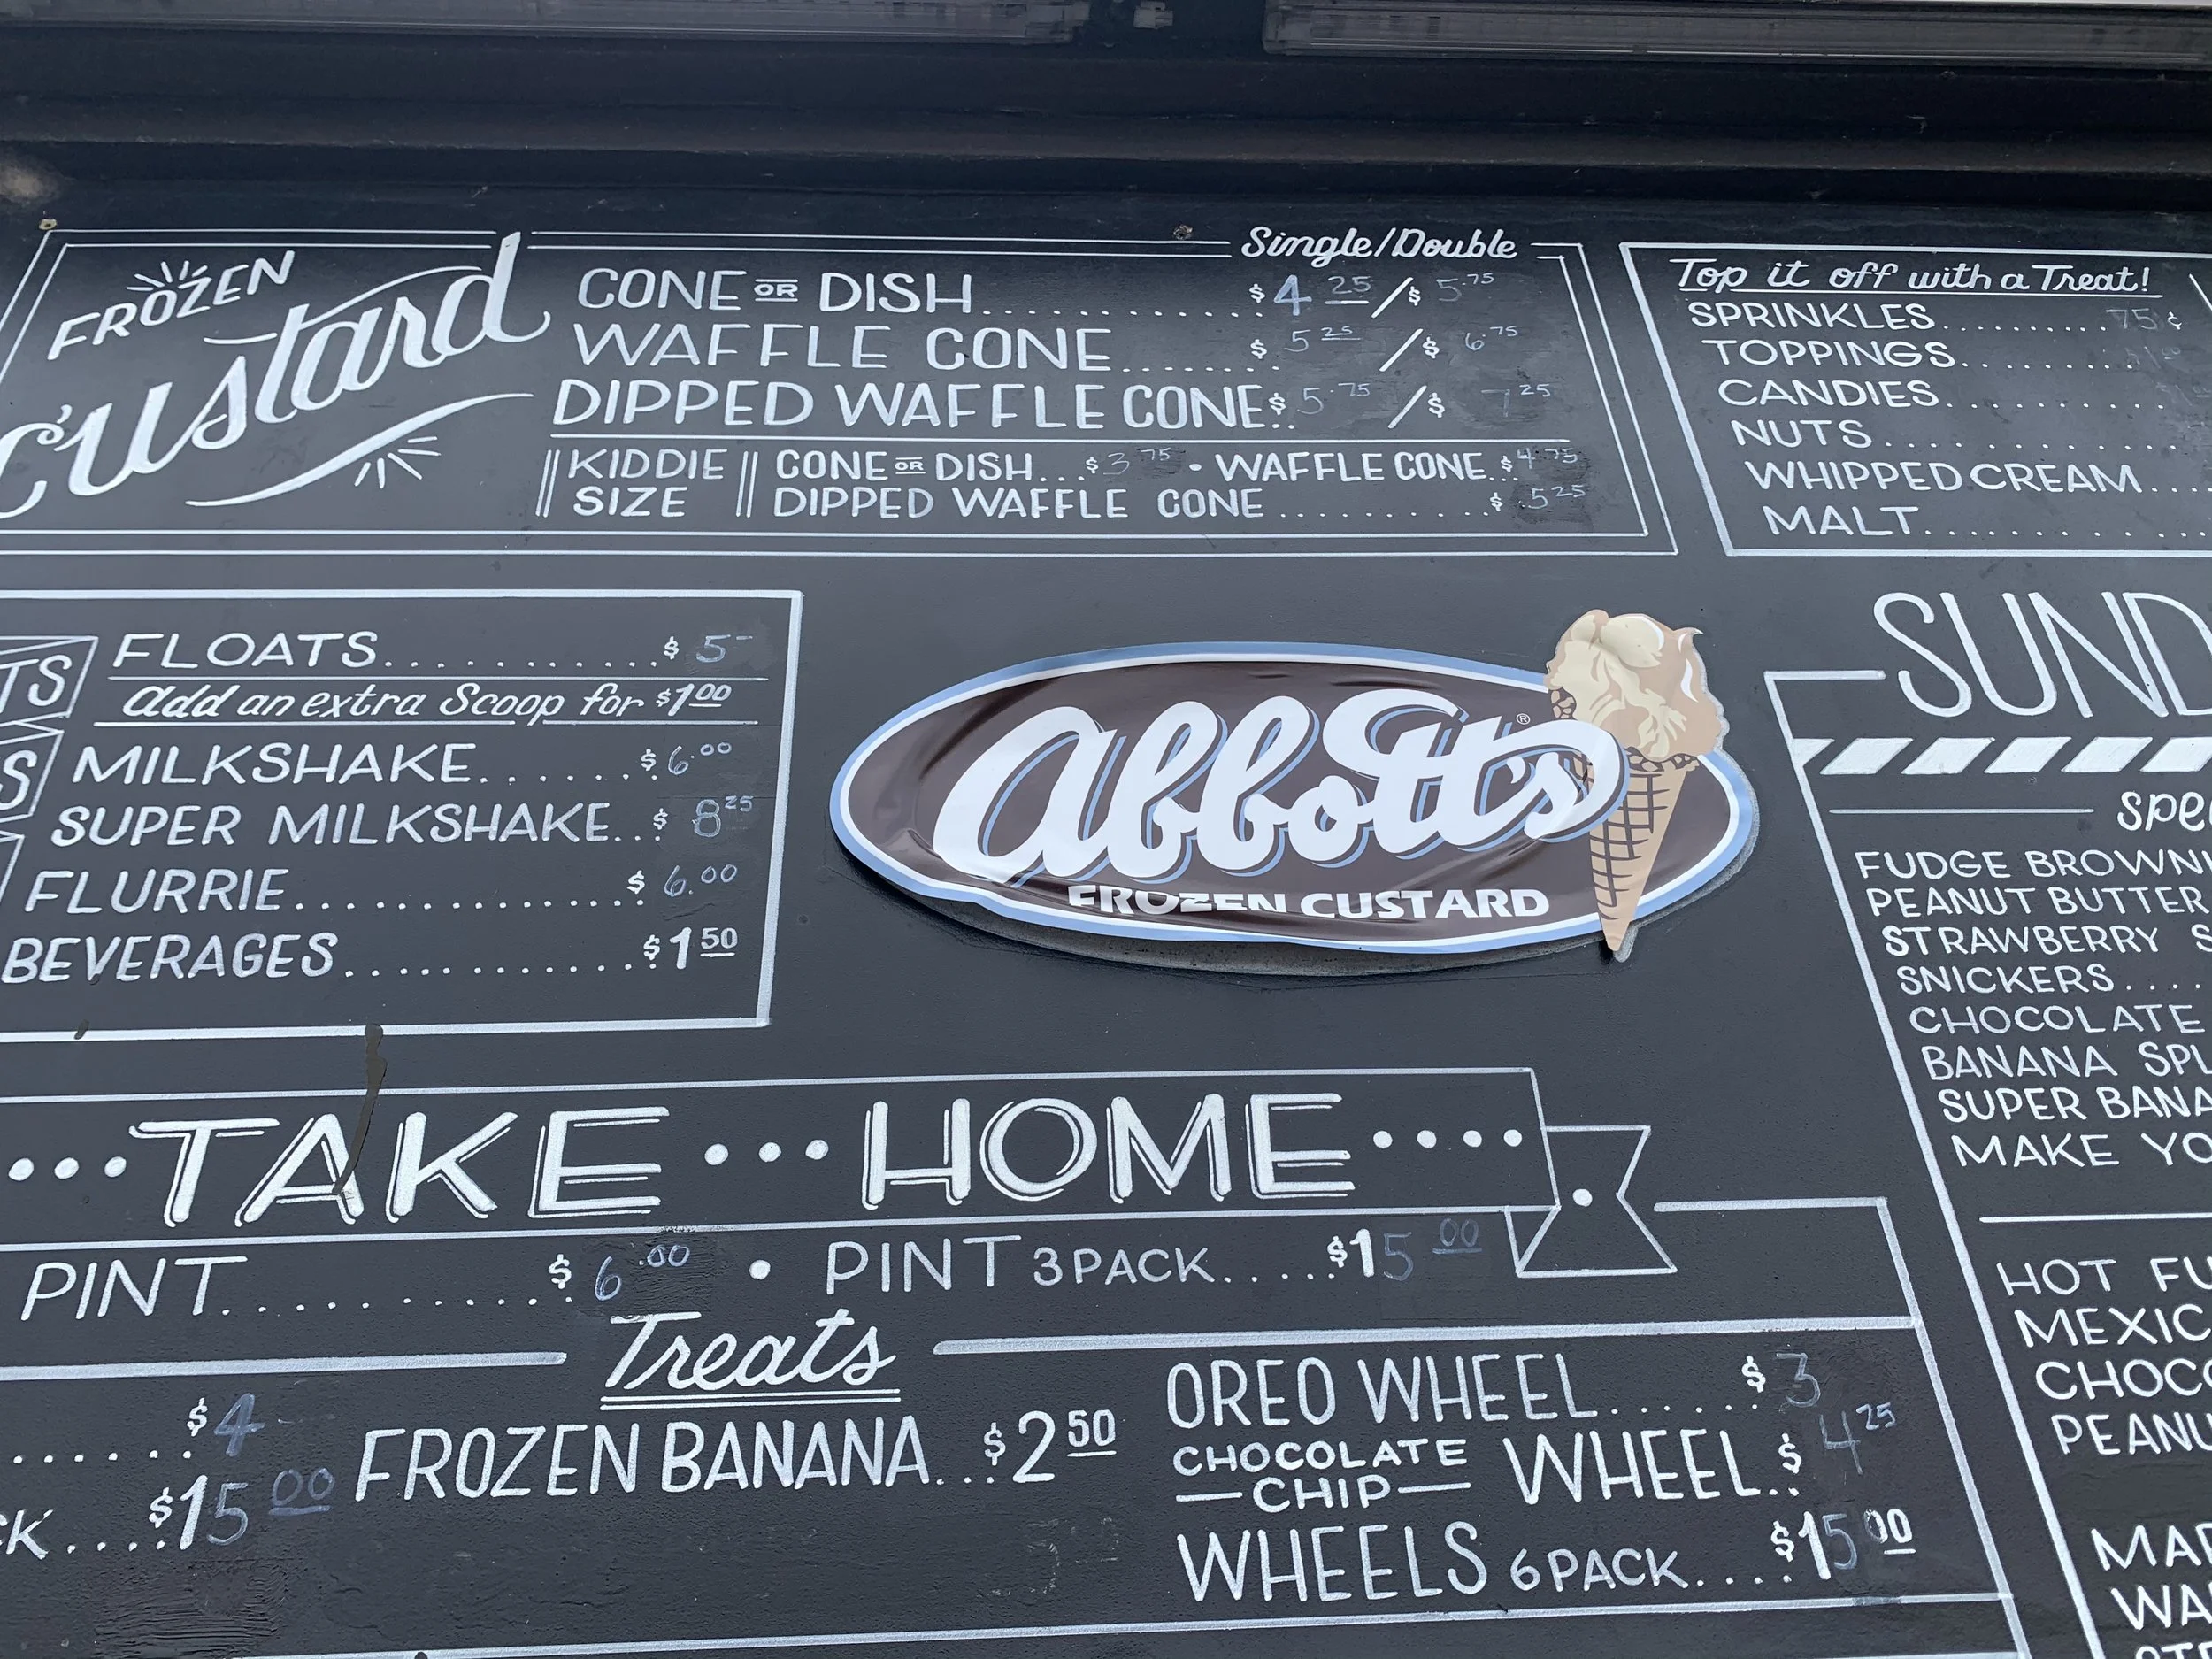 FROZEN
Custard
Single/Double
CONE OR DISH.............$4 25/$5.75
WAFFLE CONE........$5 25/$6.75
DIPPED WAFFLE CONE..$5.75/$7 25
KIDDIE SIZE
CONE OR DISH...$3 75 • WAFFLE CONE..$4.75
DIPPED WAFFLE CONE...........$.5 25
Top it off with a Treat!
SPRINKLES..........75¢
TOPPINGS.......
CANDIES.........
NUTS............
WHIPPED CREAM....
MALT............
TS
S
FLOATS............$5-
Add an extra Scoop for $1 00
MILKSHAKE.......$6.00
SUPER MILKSHAKE...$8 25
FLURRIE..............$6.00
BEVERAGES.............$1 50
Abbott's®
FROZEN CUSTARD
SUND
FUDGE BROWN
PEANUT BUTTER
STRAWBERRY S
SNICKERS....
CHOCOLATE
BANANA SPL
SUPER BANA
MAKE YO
HOT FU
MEXIC
CHOCO
PEANU
MAR
WA
•••TAKE•••HOME••••
PINT............$6.00 • PINT 3 PACK......$15 00
Treats
.......$4
CK....$15 00
FROZEN BANANA...$2 50
OREO WHEEL.......$3
CHOCOLATE CHIP WHEEL..$4 25
WHEELS 6 PACK....$15 00